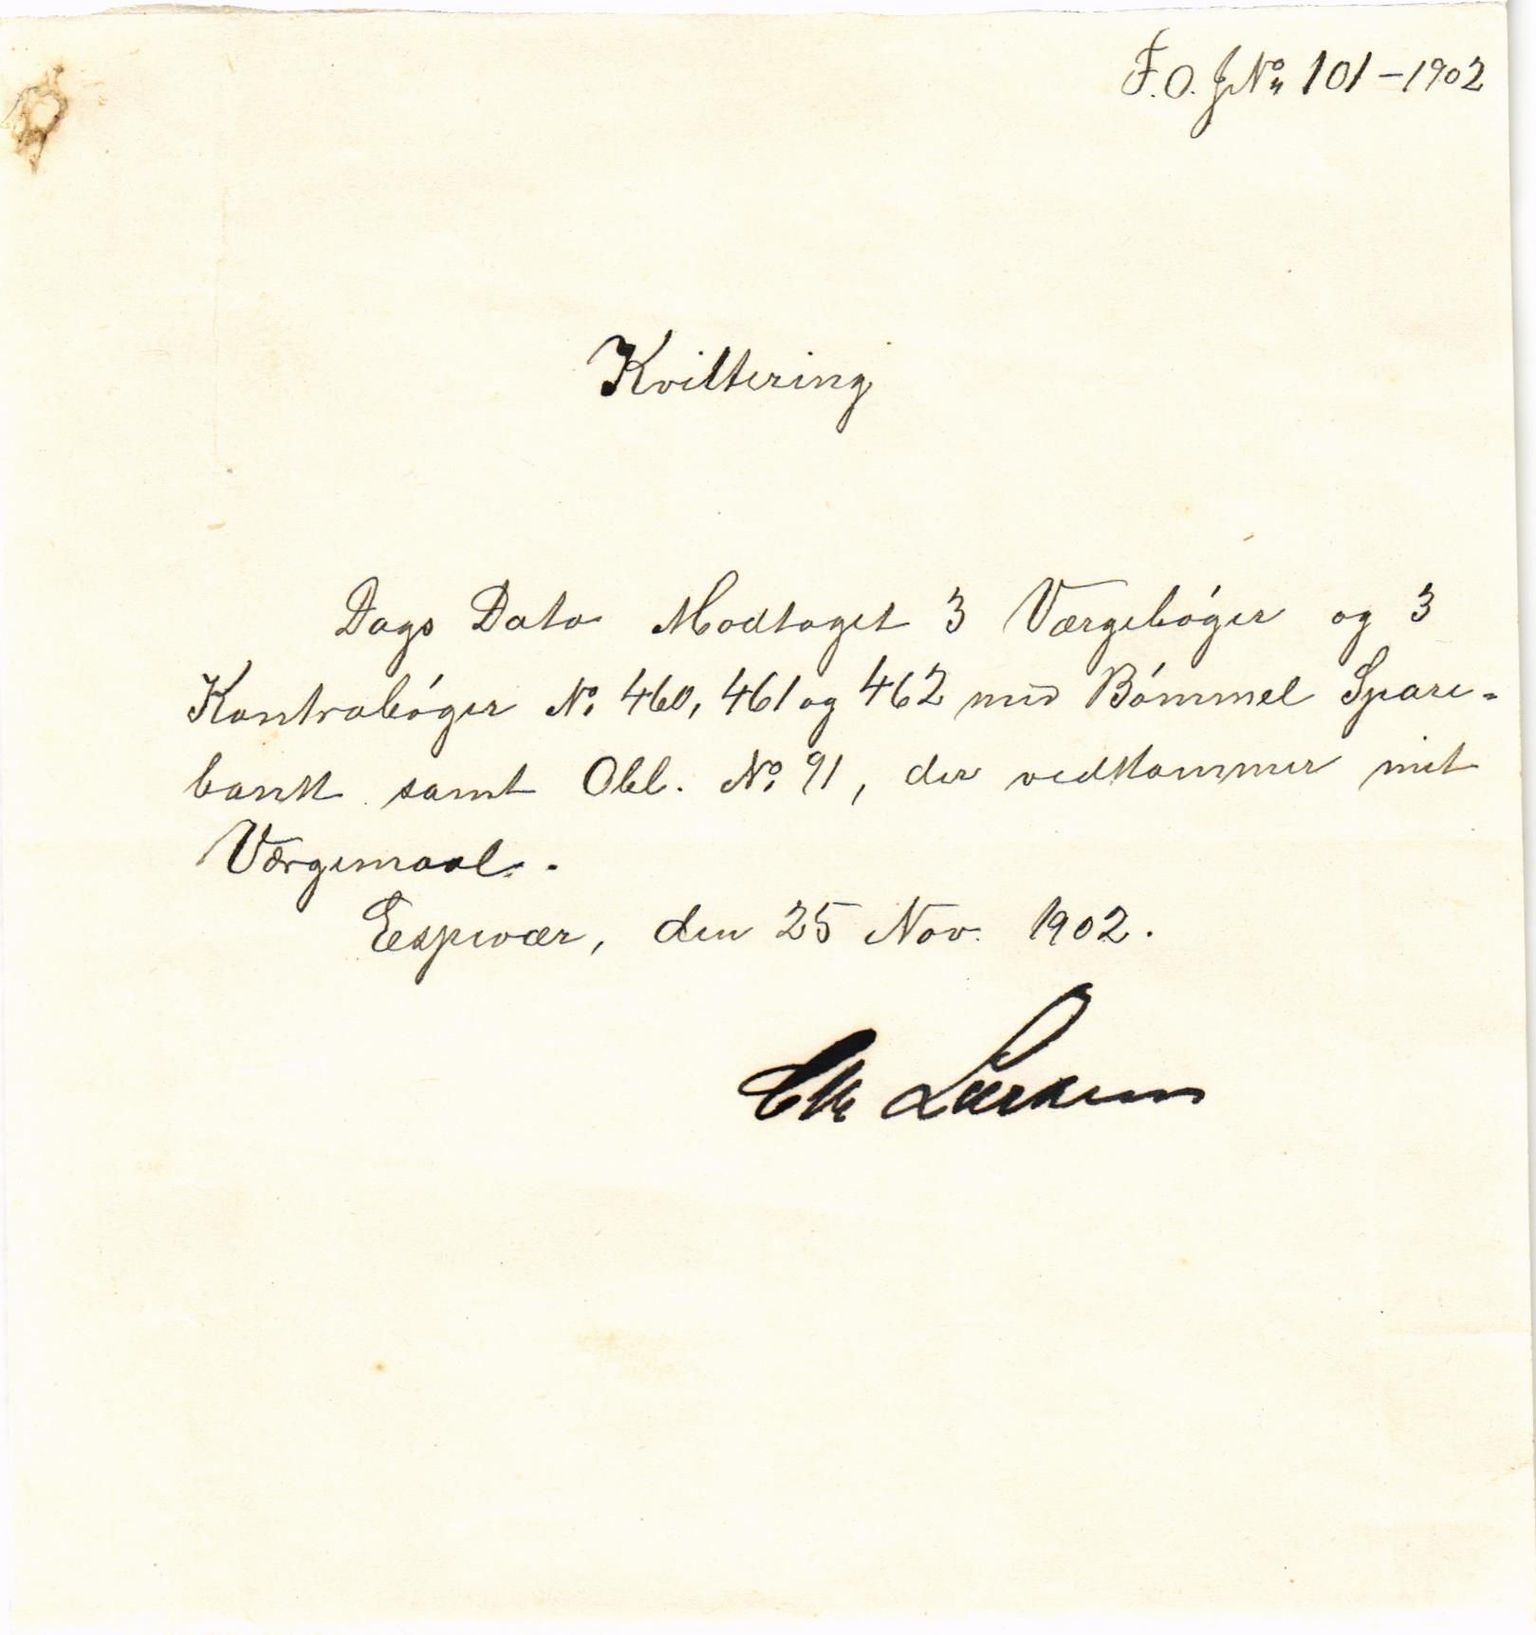 F.O. J.No. 101 - 1902
Kvittering
Dags Dato Modtaget 3 Værgebóger og 3
Kontrabóger No. 460, 461 og 462 med Bómmel Spare=
bank samt Obl. No. 91, der vedkommer mit
Værgemaal.
Espevær, den 25 Nov. 1902.